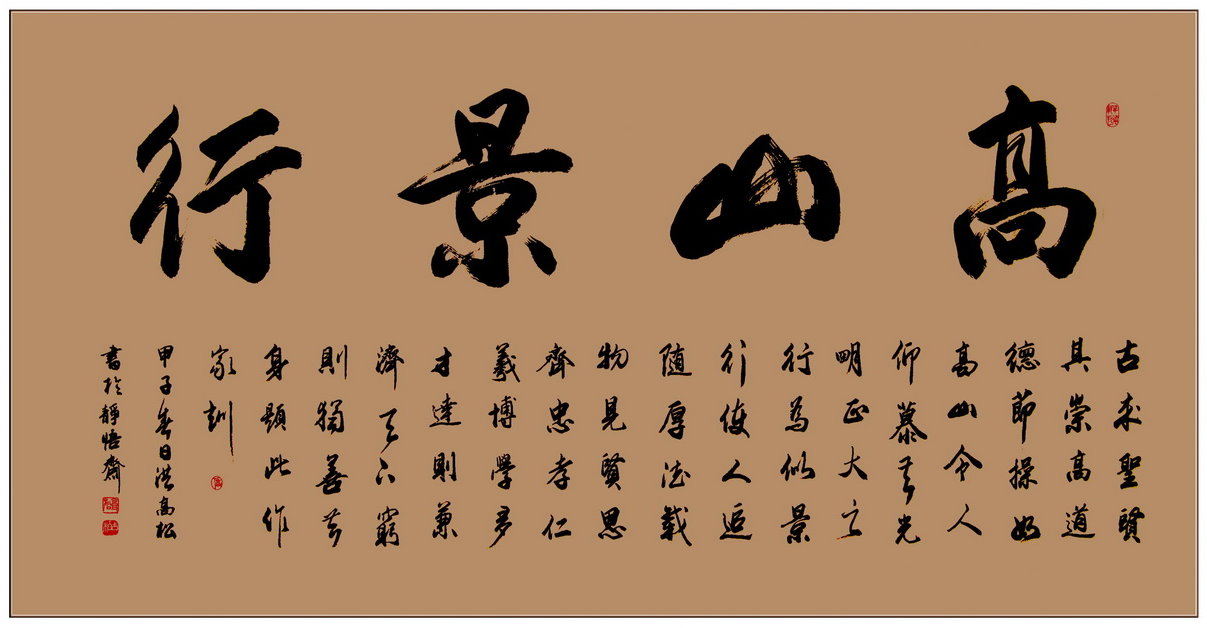 高山景行
古來聖賢
其崇高道
德節操如
高山令人
仰慕其光
明正大之
行為似景
行使人追
隨厚德載
物見賢思
齊忠孝仁
義博學多
才達則兼
濟天下窮
則獨善其
身題此作
家訓
甲子春日洪高松
書於靜悟齋